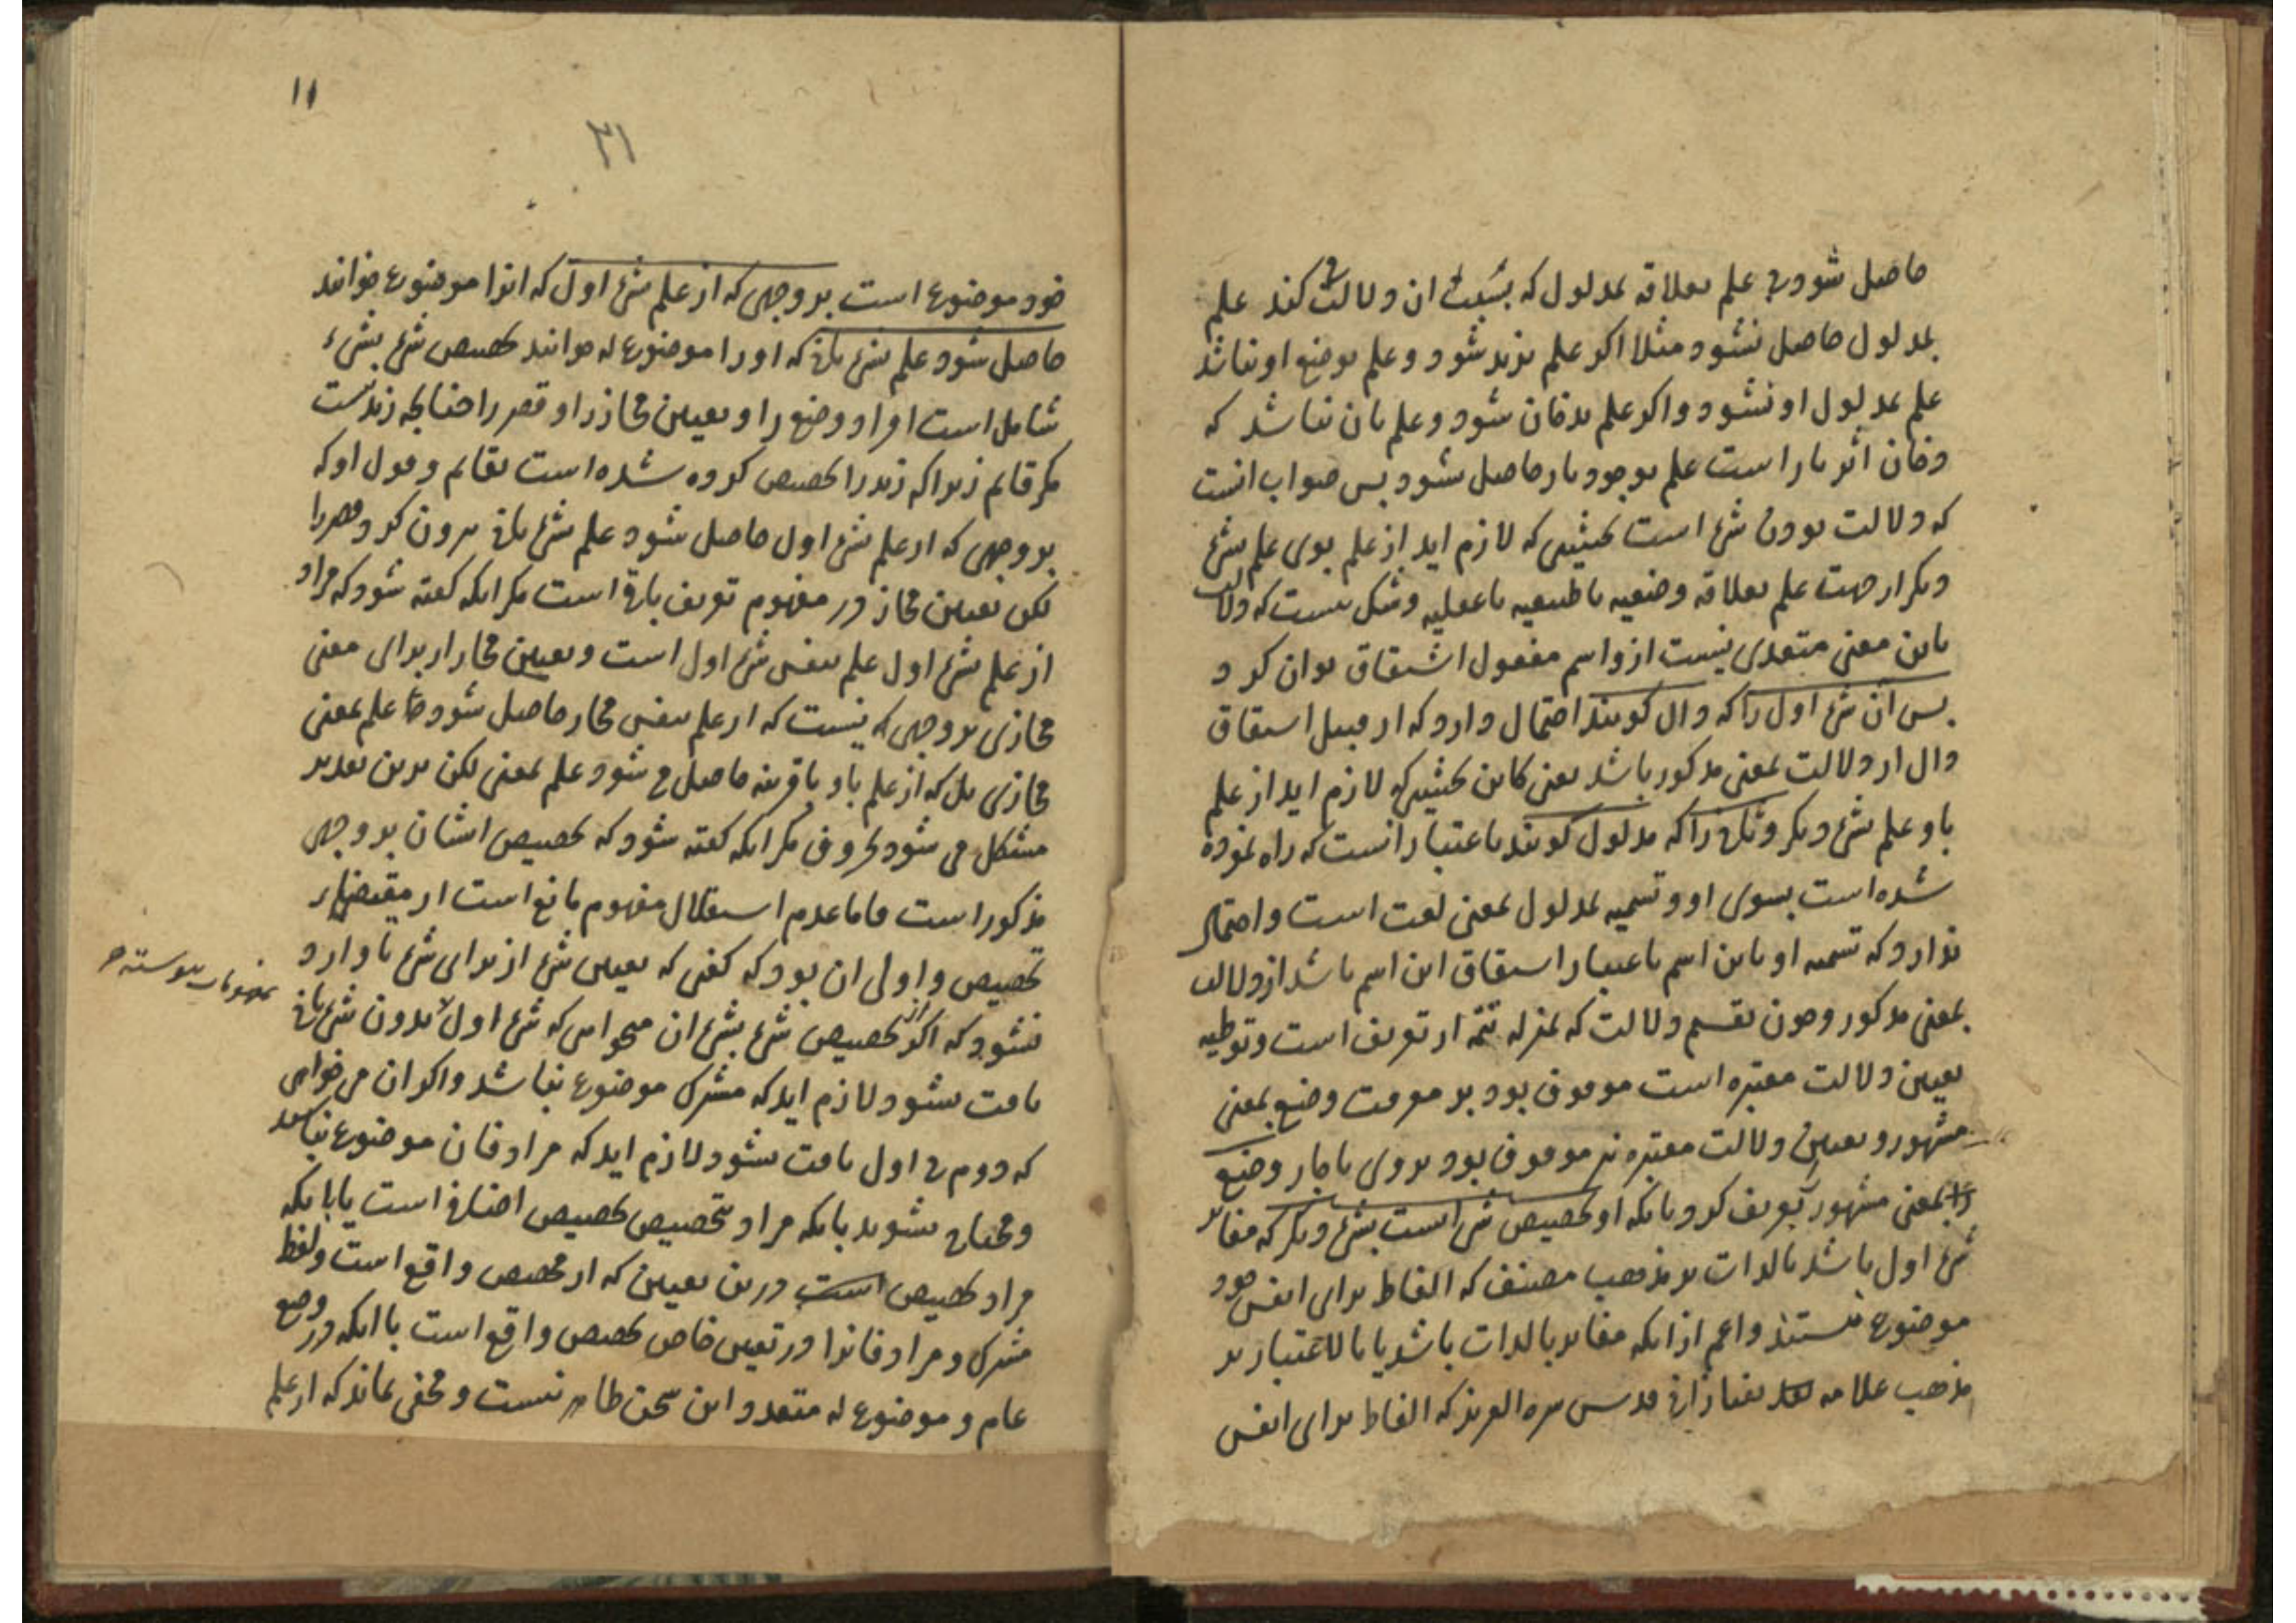 حاصل شود بی علم بعلاقه مدلول که بسبب ان دلالت کند علم
بمدلول حاصل نشود مثلا اکر علم بزید شود و علم بوضع او نباشد
علم بمدلول او نشود و اکر علم بدخان شود و علم بان نباشد که
دخان اثر نار است علم بوجود نار حاصل نشود پس صواب انست
که دلالت بودن شئ است بحیثیتی که لازم اید از علم بوی علم بشئ
دیکر از جهت علم بعلاقه وضعیه یا طبیعیه یا عقلیه و شک نیست که دلالت
باین معنی متعدی نیست از و اسم مفعول اشتقاق توان کرد
پس ان شئ اول را که دال کویند احتمال دارد که از قبیل اشتقاق
دال از دلالت بمعنی مذکور باشد یعنی کاین بحیثیتی که لازم اید از علم
باو علم بشئ دیکر و ثانی را که مدلول کویند باعتبار انست که راه نموده
شده است بسوی او و تسمیه بمدلول بمعنی لغت است و احتمال
ندارد که تسمیه او باین اسم باعتبار اشتقاق این اسم باشد از دلالت
بمعنی مذکور و چون تقسیم دلالت که بمنزله تتمه از تعریف است و توطیه
تعیین دلالت معتبره است موقوف بود بر معرفت وضع بمعنی
مشهور و تعیین دلالت معتبره نیز موقوف بود بروی ناچار وضع
را بمعنی مشهور تعریف کرد بانکه او تخصیص شئ است بشئ دیکر که مغایر
شئ اول باشد بالذات بر مذهب مصنف که الفاظ برای انفس خود
موضوع نیستند و اعم ازانکه مغایر بالذات باشد یا بالاعتبار بر
مذهب علامه تفتازانی قدس سره العزیز که الفاظ برای انفس
۱۱
۲۱
خود موضوع است بر وجهی که از علم شئ اول که انرا موضوع خوانند
حاصل شود علم شئ ثانی که او را موضوع له خوانند تخصیص شئ بشئ
شامل است افراد وضع را و تعیین مجاز را و قصر را چنانچه زید نیست
مکر قایم زیرا که زید را تخصیص کرده شده است بقایم و قول او که
بر وجهی که از علم شئ اول حاصل شود علم شئ ثانی بیرون کرد قصر را
لکن تعیین مجاز در مفهوم تعریف باقی است مکر انکه کفته شود که مراد
از علم شئ اول علم بنفس شئ اول است و تعیین مجاز از برای معنی
مجازی بر وجهی نیست که از علم بنفس مجاز حاصل شود علم بمعنی
مجازی بل که از علم باو با قرینه حاصل می شود علم بمعنی لکن برین تقدیر
مشکل می شود بحروف مکر انکه کفته شود که تخصیص ایشان بر وجهی
مذکور است فاما عدم استقلال مفهوم مانع است از مقتضای
تخصیص و اولی ان بود که کفتی که تعیین شئ از برای شئ تا وارد
نشود که اکر از تخصیص شئ بشئ ان میخواهی که شئ اول بدون شئ ثانی
یافت نشود لازم اید که مشترک موضوع نباشد و اکر ان می خواهی
که دوم بی اول یافت نشود لازم اید که مرادفان موضوع نباشند
و محتاج نشوند بانکه مراد بتخصیص تخصیص اضافی است یا بانکه
مراد تخصیص است درین تعیین که از مخصص واقع است و لفظ
مشترک و مرادفانرا در تعیین خاص تخصیص واقع است با انکه در وضع
عام و موضوع له متعدد این سخن ظاهر نیست و مخفی نماند که از علم